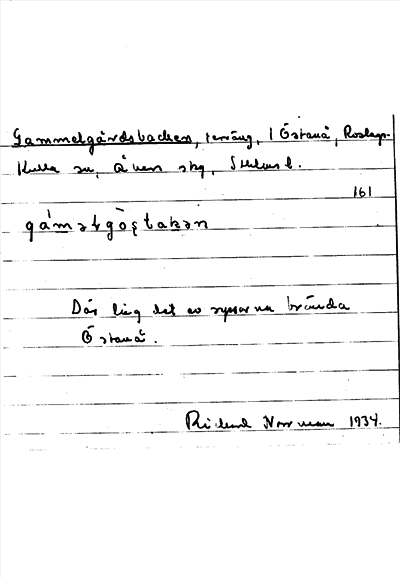 Gammelgårdsbacken, terräng, i Östanå, Roslags-
Kulla sn, Åkers skg, Sthlms l.
161
gàməlgòṣbakən
Där låg det av ryssarna brända
Östanå.
Rikard Norrman 1934.